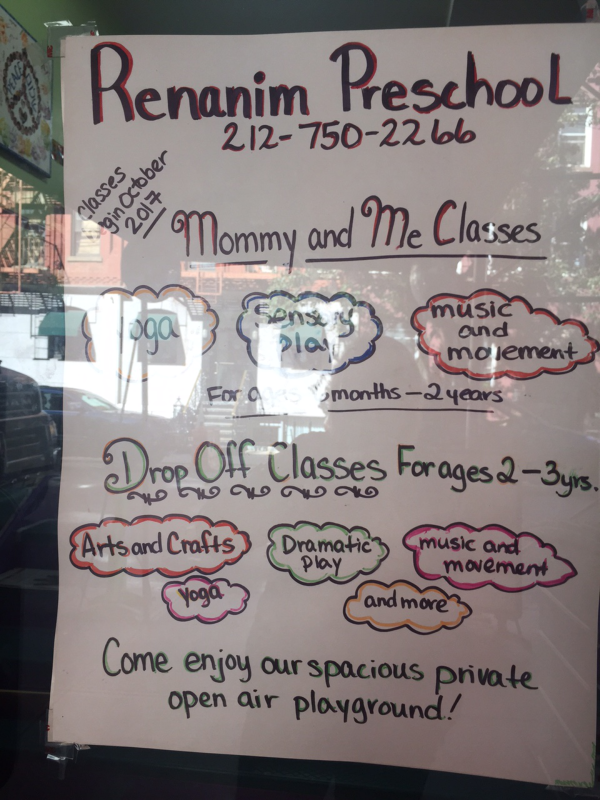 Renanim Preschool
212-750-2266
Classes
begin October
2017
Mommy and Me Classes
Yoga
Sensory
play
music
and
movement
For ages months - 2 years
Drop Off Classes For ages 2-3yrs.
Arts and Crafts
Dramatic
Play
music and
movement
yoga
and more
Come enjoy our spacious private
open air playground!